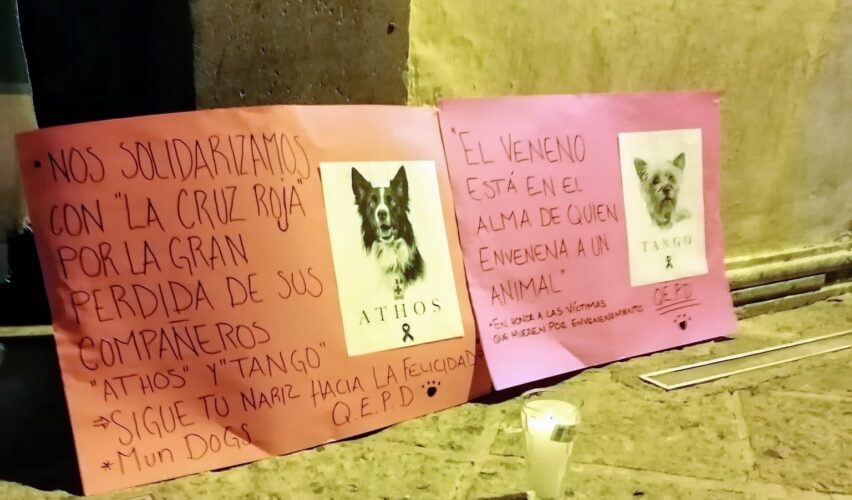 • NOS SOLIDARIZAMOS
CON "LA CRUZ ROJA"
POR LA GRAN
PERDIDA DE SUS
COMPAÑEROS
"ATHOS" Y "TANGO"
⇒ SIGUE TU NARIZ HACIA LA FELICIDAD
Q.E.P.D
* Mun DOGS
ATHOS
"EL VENENO
ESTÁ EN EL
ALMA DE QUIEN
ENVENENA A UN
ANIMAL"
* EN HONOR A LAS VÍCTIMAS
QUE MUEREN POR ENVENENAMIENTO
TANGO
Q.E.P.D